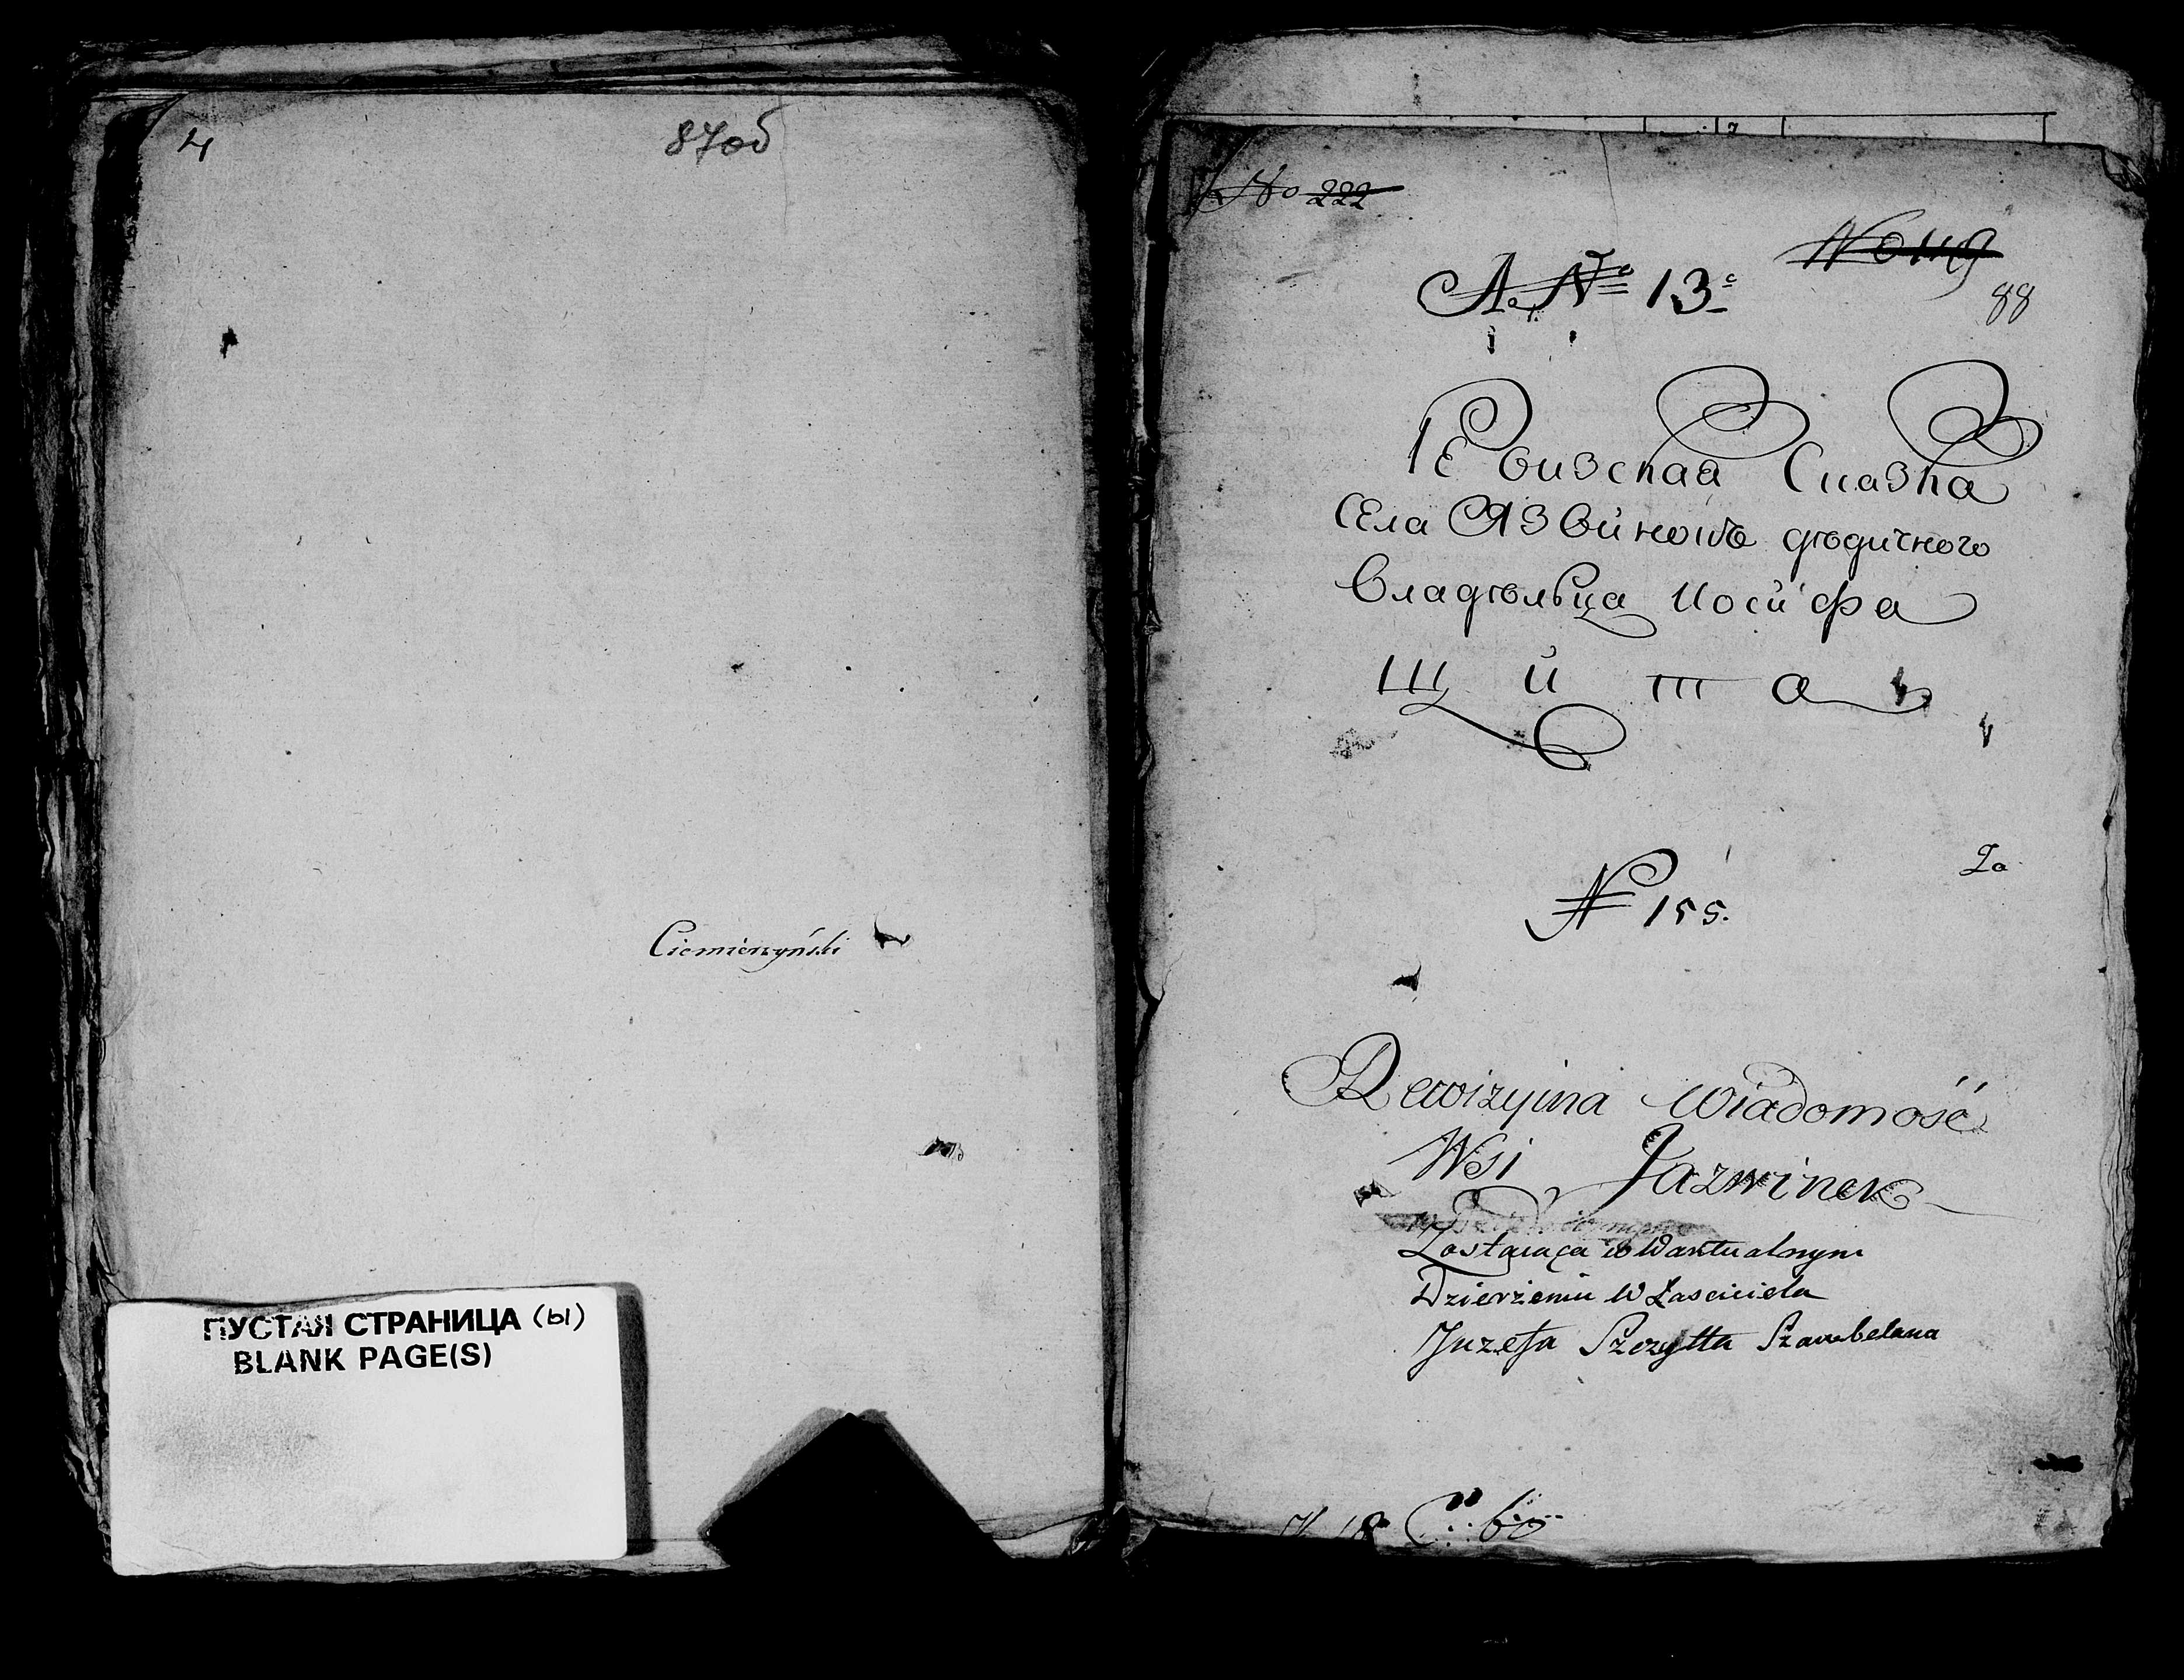 4
87об
Ciemierzyński
ПУСТАЯ СТРАНИЦА (ы)
BLANK PAGE(S)
No 222
No 119
A. No 13.
88
Ревизская Сказка
Села Язвинокъ дѣдичного
Владѣльца Иосифа
Щ и т а
2a
N 155.
Rewizyina Wiadomość
Wsi Jazwinek
Zostaiąca w Waktualnym
Dzierżeniu Włascieciela
Juzefa Szczytta Szambelana